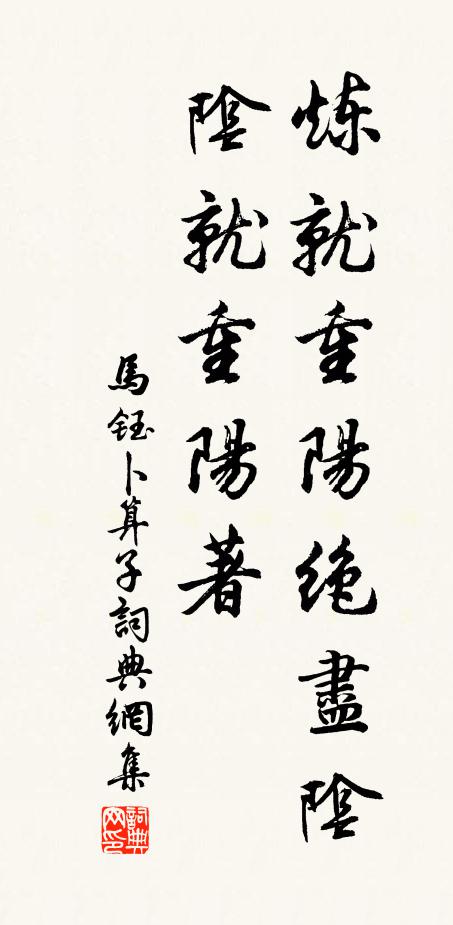 炼就重陽绝盡陰
陰就重陽著
馬鈺卜算子詞典網集
詞典网印